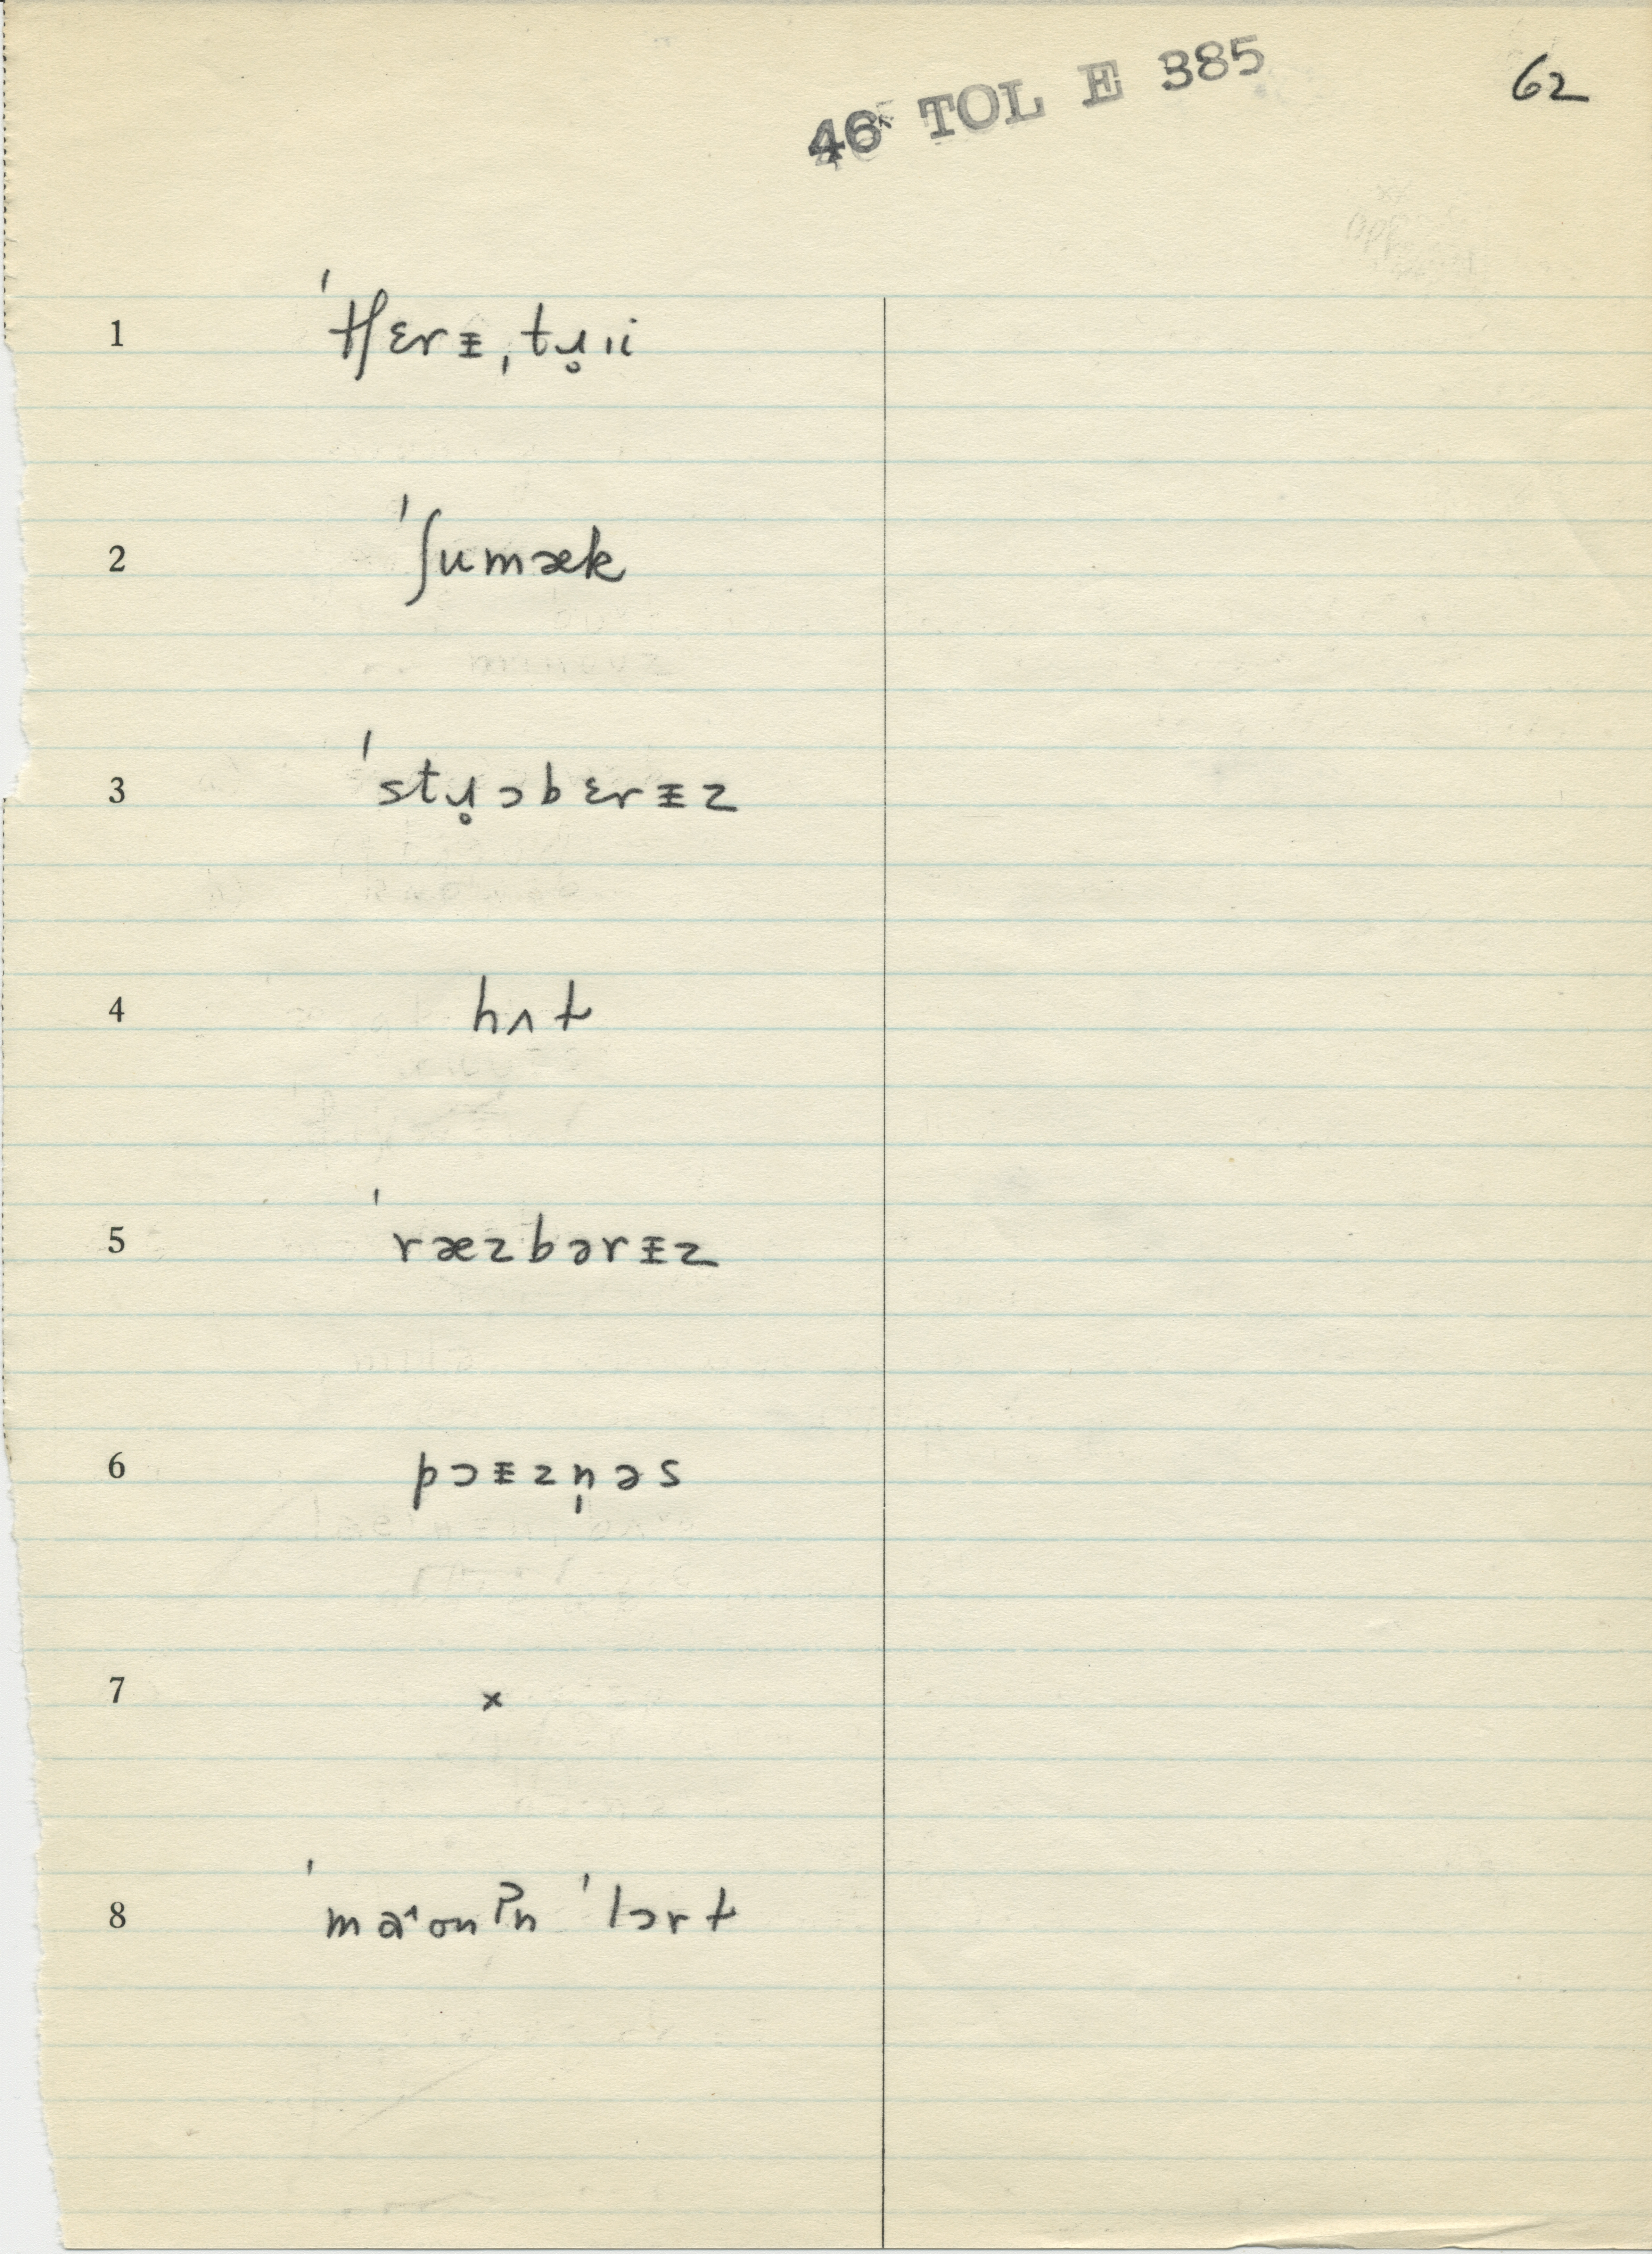 46 TOL E 385
62
1 ˈtʃɛrɪ̵ˌtɹ̥ɪi
2 ˈʃumæk
3 ˈstɹ̥ɔbɛrɪ̵z
4 hʌt
5 ˈræzbərɪ̵z
6 pɔɪ̵zn̩əs
7 x
8 ˈmaˑonʔn ˈlɔrt